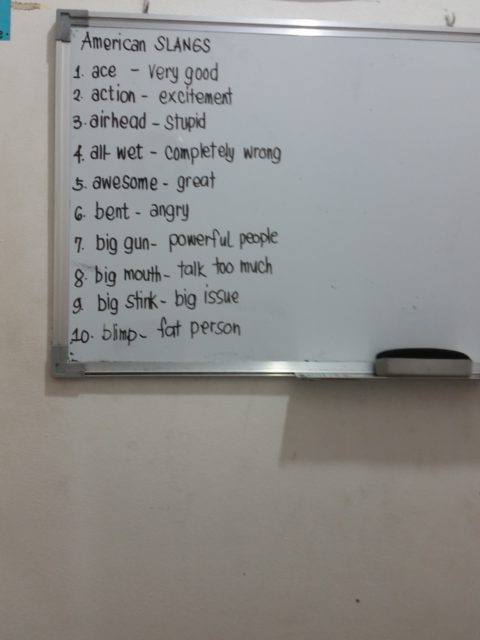 American SLANGS
1. ace - very good
2. action - excitement
3. airhead - stupid
4. all wet - completely wrong
5. awesome - great
6. bent - angry
7. big gun - powerful people
8. big mouth - talk too much
9. big stink - big issue
10. blimp - fat person